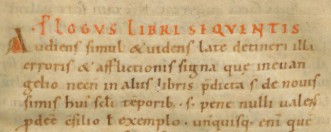 PLOGUS LIBRI SEQUENTIS
Audiens simul & uidens late detineri illa
erroris & afflictionis signa que in euan
gelio necn in aliis libris p̄dicta s̄ de nouis
simis hui' sc̄li tēporib. s̄; pene nulli ualens
p̄dēē c̄silio ł exemplo. un'quisq; eni que